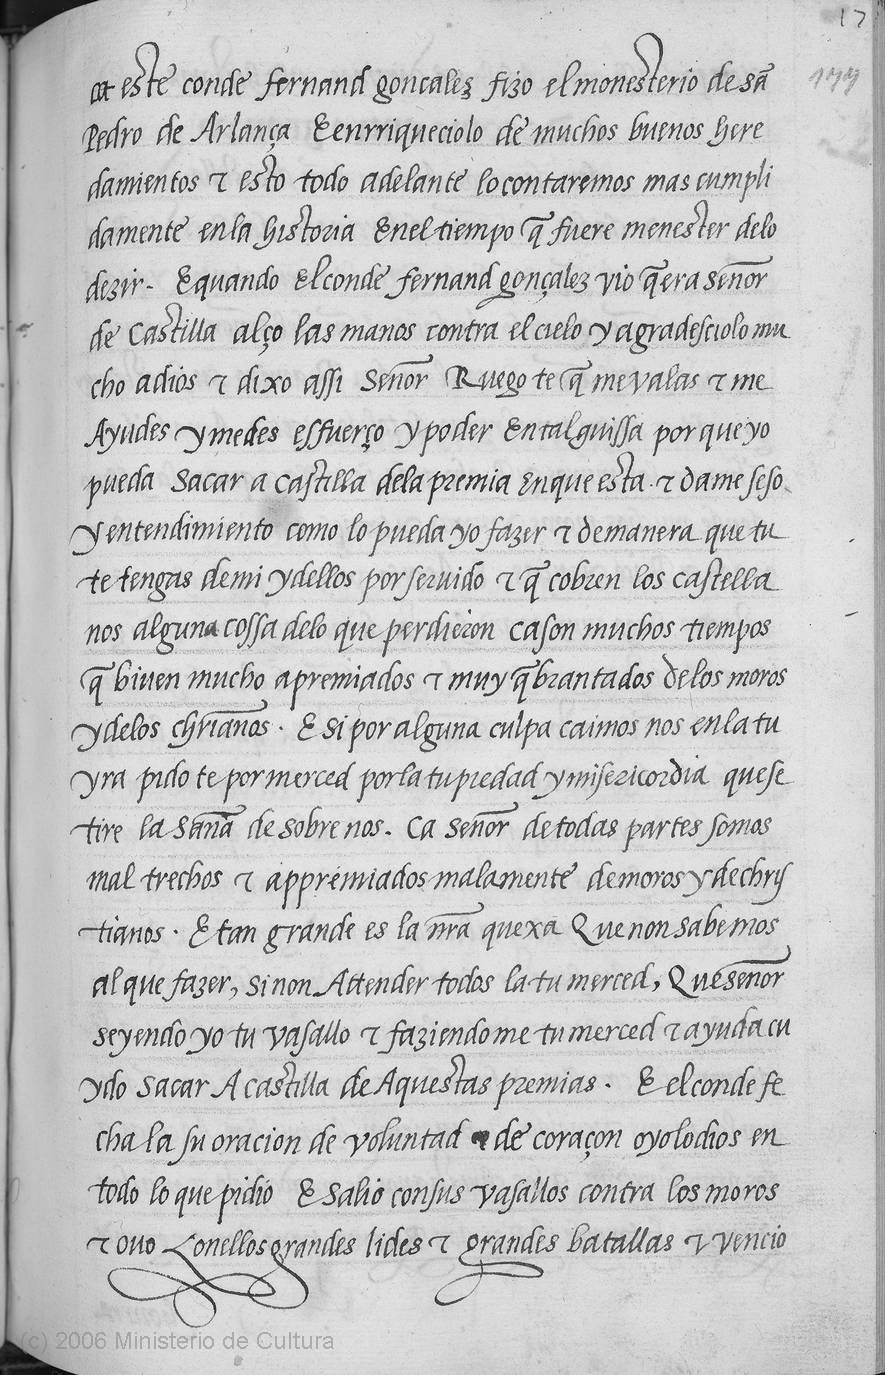 17
177
este conde fernand gonçalez fizo el monesterio de sā
Pedro de Arlança E enrriqueciolo de muchos buenos here
damientos τ esto todo adelante lo contaremos mas cumpli
damente en la historia E nel tiempo q̃ fuere menester delo
dezir. E quando El conde fernand gonçalez vio q̃ era señor
de Castilla alço las manos contra el cielo y agradesciolo mu
cho a dios τ dixo assi Señor Ruego te q̃ me valas τ me
Ayudes y me des esfuerço y poder En tal guissa por que yo
pueda Sacar a castilla dela premia En que esta. τ dame seso
y entendimiento como lo pueda yo fazer τ de manera que tu
te tengas de mi y dellos por seruido τ q̃ cobren los castella
nos alguna cossa delo que perdieron ca son muchos tiempos
q̃ biuen mucho apremiados τ muy q̃brantados delos moros
y delos chr̄ianos. E si por alguna culpa caimos nos en la tu
yra pido te por merced por la tu piedad y misericordia que se
tire la Sañā de sobre nos. Ca señor de todas partes somos
mal trechos τ appremiados malamente de moros y de chris
tianos. E tan grande es la nr̄a quexa Que non sabemos
al que fazer, si non Attender todos la tu merced, Que señor
seyendo yo tu vasallo τ faziendo me tu merced τ ayuda cu
ydo sacar A castilla de Aquestas premias. E el conde fe
cha la su oracion de voluntad de coraçon oyolo dios en
todo lo que pidio E salio con sus vasallos contra los moros
τ ouo Con ellos grandes lides τ grandes batallas τ vencio
(c) 2006 Ministerio de Cultura